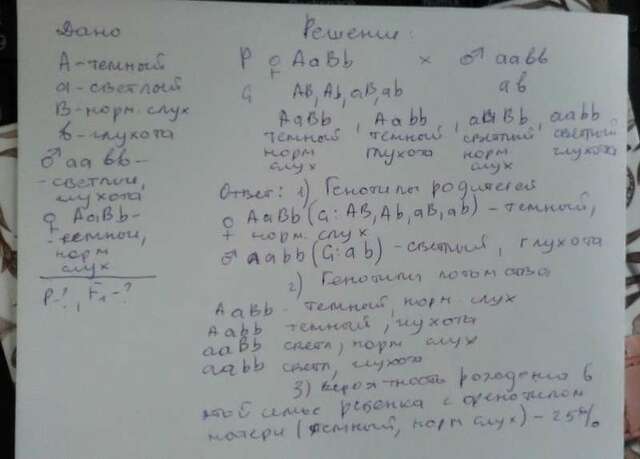 Дано
А-темный
а-светлый
В-норм. слух
в-глухота
♂ аа вв-
-светлый,
глухота
♀ АаВb-
-темный,
норм
слух
Р-?, F₁-?
Решение:
Р ♀ АаВb × ♂ аавв
G АВ, Аb, аВ, аb ав
АаВb, Ааbb, ааВb, ааbb
темный темный светлый светлый
норм глухота норм глухота
слух слух
Ответ: 1) Генотипы родителей
♀ АаВb (G: АВ, Аb, аВ, аb) - темный,
норм. слух
♂ ааbb (G: аb) - светлый, глухота
2) Генотипы потомства
АаВb - темный, норм. слух
Ааbb темный, глухота
ааВb светл, норм слух
ааbb светл, глухота
3) вероятность рождения в
этой семье ребенка с фенотипом
матери (темный, норм слух) - 25%